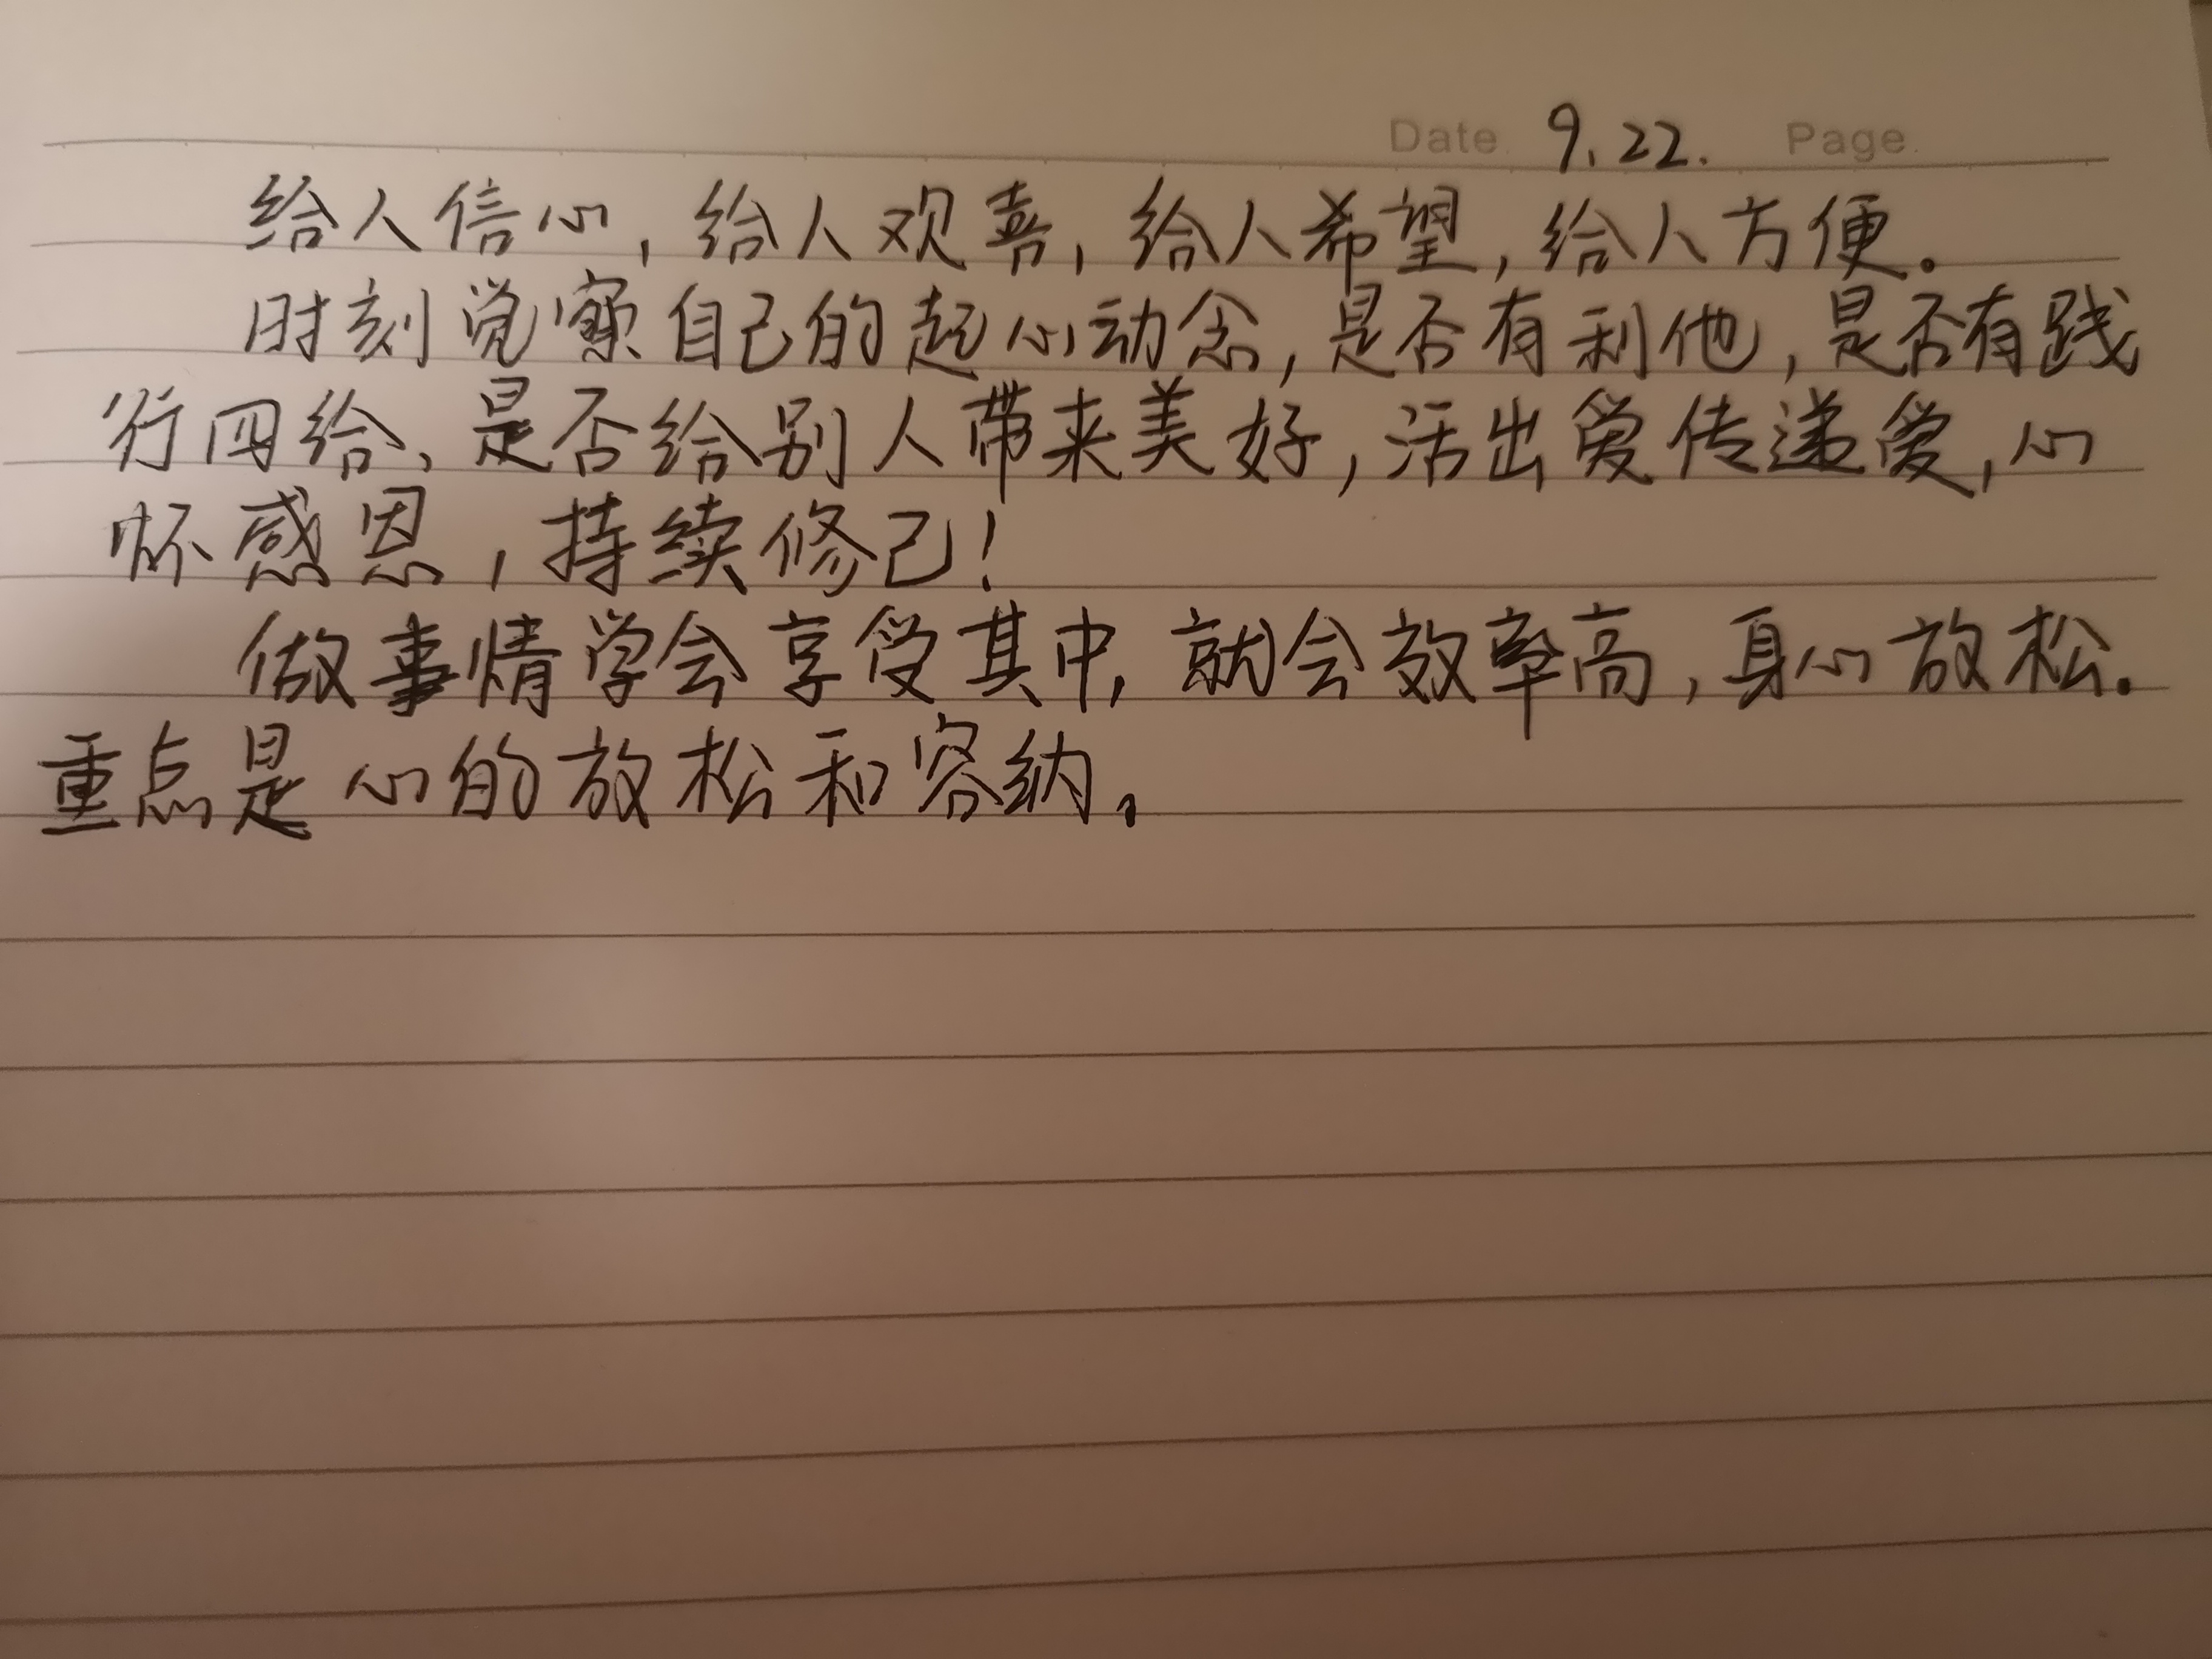 Date 9.22. Page.
给人信心,给人欢喜,给人希望,给人方便。
时刻觉察自己的起心动念,是否有利他,是否有践
行四给、是否给别人带来美好,活出爱传递爱,心
怀感恩,持续修己!
做事情学会享受其中,就会效率高,身心放松.
重点是心的放松和容纳。